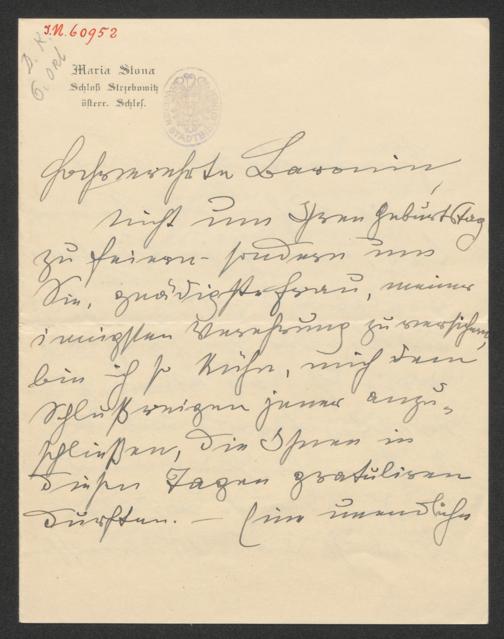 I.N. 60952
Maria Stona
Schloß Strzebowitz
österr. Schles.
Hochverehrte Baronin,
nicht um Ihren Geburtstag
zu feiern - sondern um
Sie, gnädigste Frau, meiner
innigsten Verehrung zu versichern,
bin ich so kühn, mich dem
Schlußreigen jener anzu-
schließen, die Ihnen in
diesen Tagen gratuliren
durften. – Eine unendliche